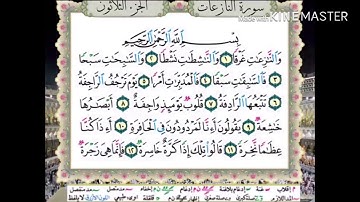 الجزء الثلاثون
سورة النازعات
Made with KINEMASTER
بِسْمِ اللَّهِ الرَّحْمَٰنِ الرَّحِيمِ
وَالنَّازِعَاتِ غَرْقًا ١ وَالنَّاشِطَاتِ نَشْطًا ٢ وَالسَّابِحَاتِ سَبْحًا
٣ فَالسَّابِقَاتِ سَبْقًا ٤ فَالْمُدَبِّرَاتِ أَمْرًا ٥ يَوْمَ تَرْجُفُ الرَّاجِفَةُ
٦ تَتْبَعُهَا الرَّادِفَةُ ٧ قُلُوبٌ يَوْمَئِذٍ وَاجِفَةٌ ٨ أَبْصَارُهَا
خَاشِعَةٌ ٩ يَقُولُونَ أَءِنَّا لَمَرْدُودُونَ فِي الْحَافِرَةِ ١٠ أَءِذَا كُنَّا
عِظَامًا نَّخِرَةً ١١ قَالُوا تِلْكَ إِذًا كَرَّةٌ خَاسِرَةٌ ١٢ فَإِنَّمَا هِيَ زَجْرَةٌ